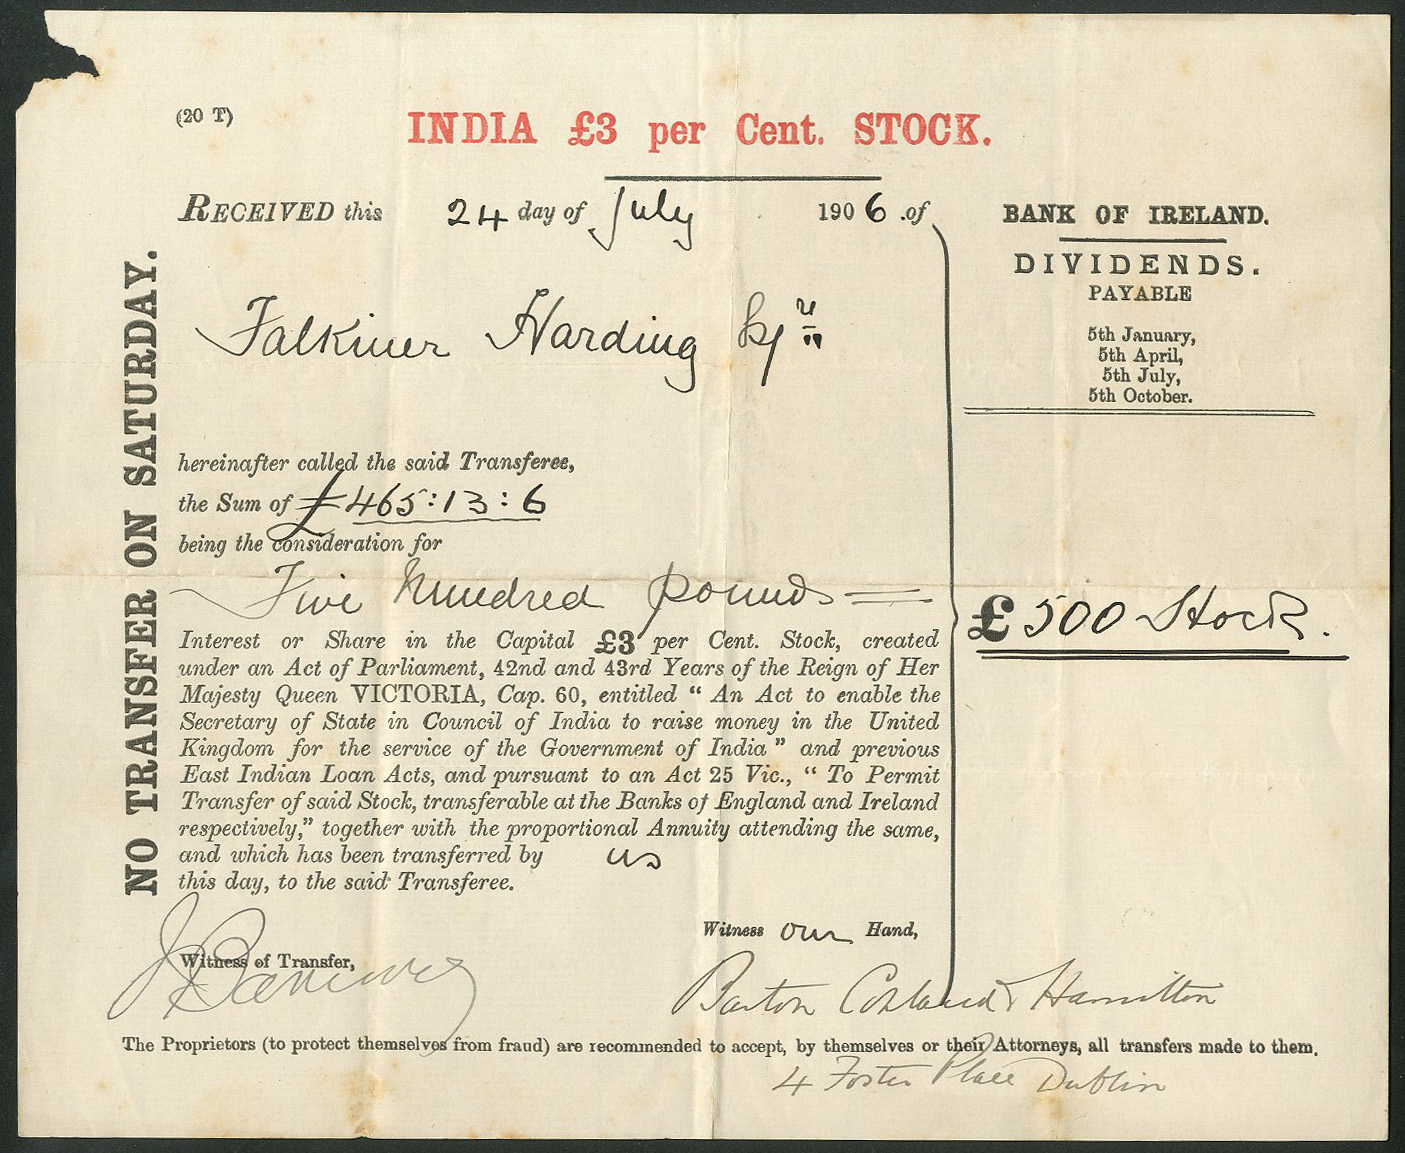 (20 T)
INDIA £3 per Cent. STOCK.
RECEIVED this 24 day of July 1906 .of
Falkiner Harding Esqre
hereinafter called the said Transferee,
the Sum of £465:13:6
being the consideration for
Five Hundred pounds
Interest or Share in the Capital £3 per Cent. Stock, created
under an Act of Parliament, 42nd and 43rd Years of the Reign of Her
Majesty Queen VICTORIA, Cap. 60, entitled “ An Act to enable the
Secretary of State in Council of India to raise money in the United
Kingdom for the service of the Government of India ” and previous
East Indian Loan Acts, and pursuant to an Act 25 Vic., “ To Permit
Transfer of said Stock, transferable at the Banks of England and Ireland
respectively,” together with the proportional Annuity attending the same,
and which has been transferred by us
this day, to the said Transferee.
Witness our Hand,
Witness of Transfer,
Barton & Hamilton
The Proprietors (to protect themselves from fraud) are recommended to accept, by themselves or their Attorneys, all transfers made to them.
4 Foster Place Dublin
NO TRANSFER ON SATURDAY.
BANK OF IRELAND.
DIVIDENDS.
PAYABLE
5th January,
5th April,
5th July,
5th October.
£500 Stock.